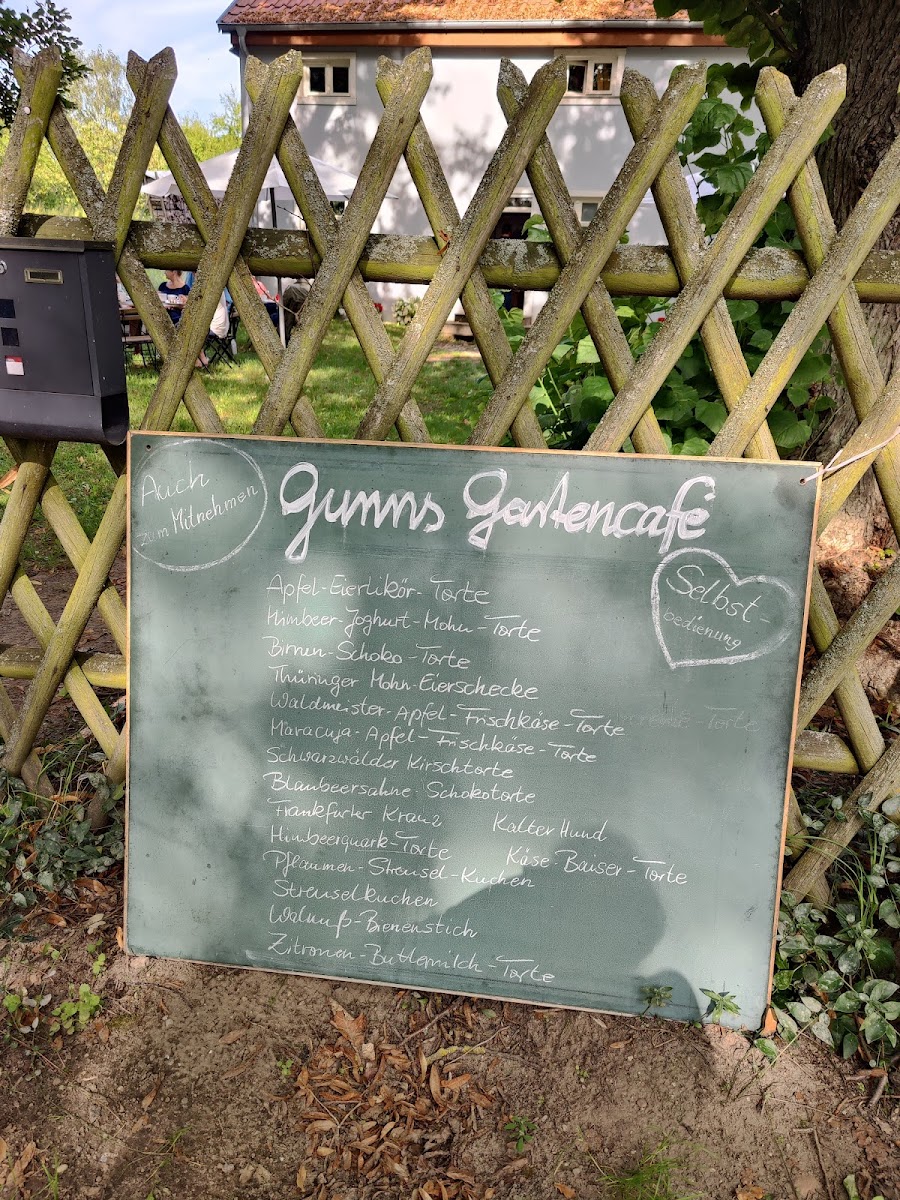 Auch
zum Mitnehmen
Gunns Gartencafé
Selbst-
bedienung
Apfel-Eierlikör-Torte
Himbeer-Joghurt-Mohn-Torte
Birnen-Schoko-Torte
Thüringer Mohn-Eierschecke
Waldmeister-Apfel-Frischkäse-Torte
Maracuja-Apfel-Frischkäse-Torte
Schwarzwälder Kirschtorte
Blaubeersahne-Schokotorte
Frankfurter Kranz Kalter Hund
Himbeerquark-Torte Käse-Baiser-Torte
Pflaumen-Streusel-Kuchen
Streuselkuchen
Walnuß-Bienenstich
Zitronen-Buttermilch-Torte